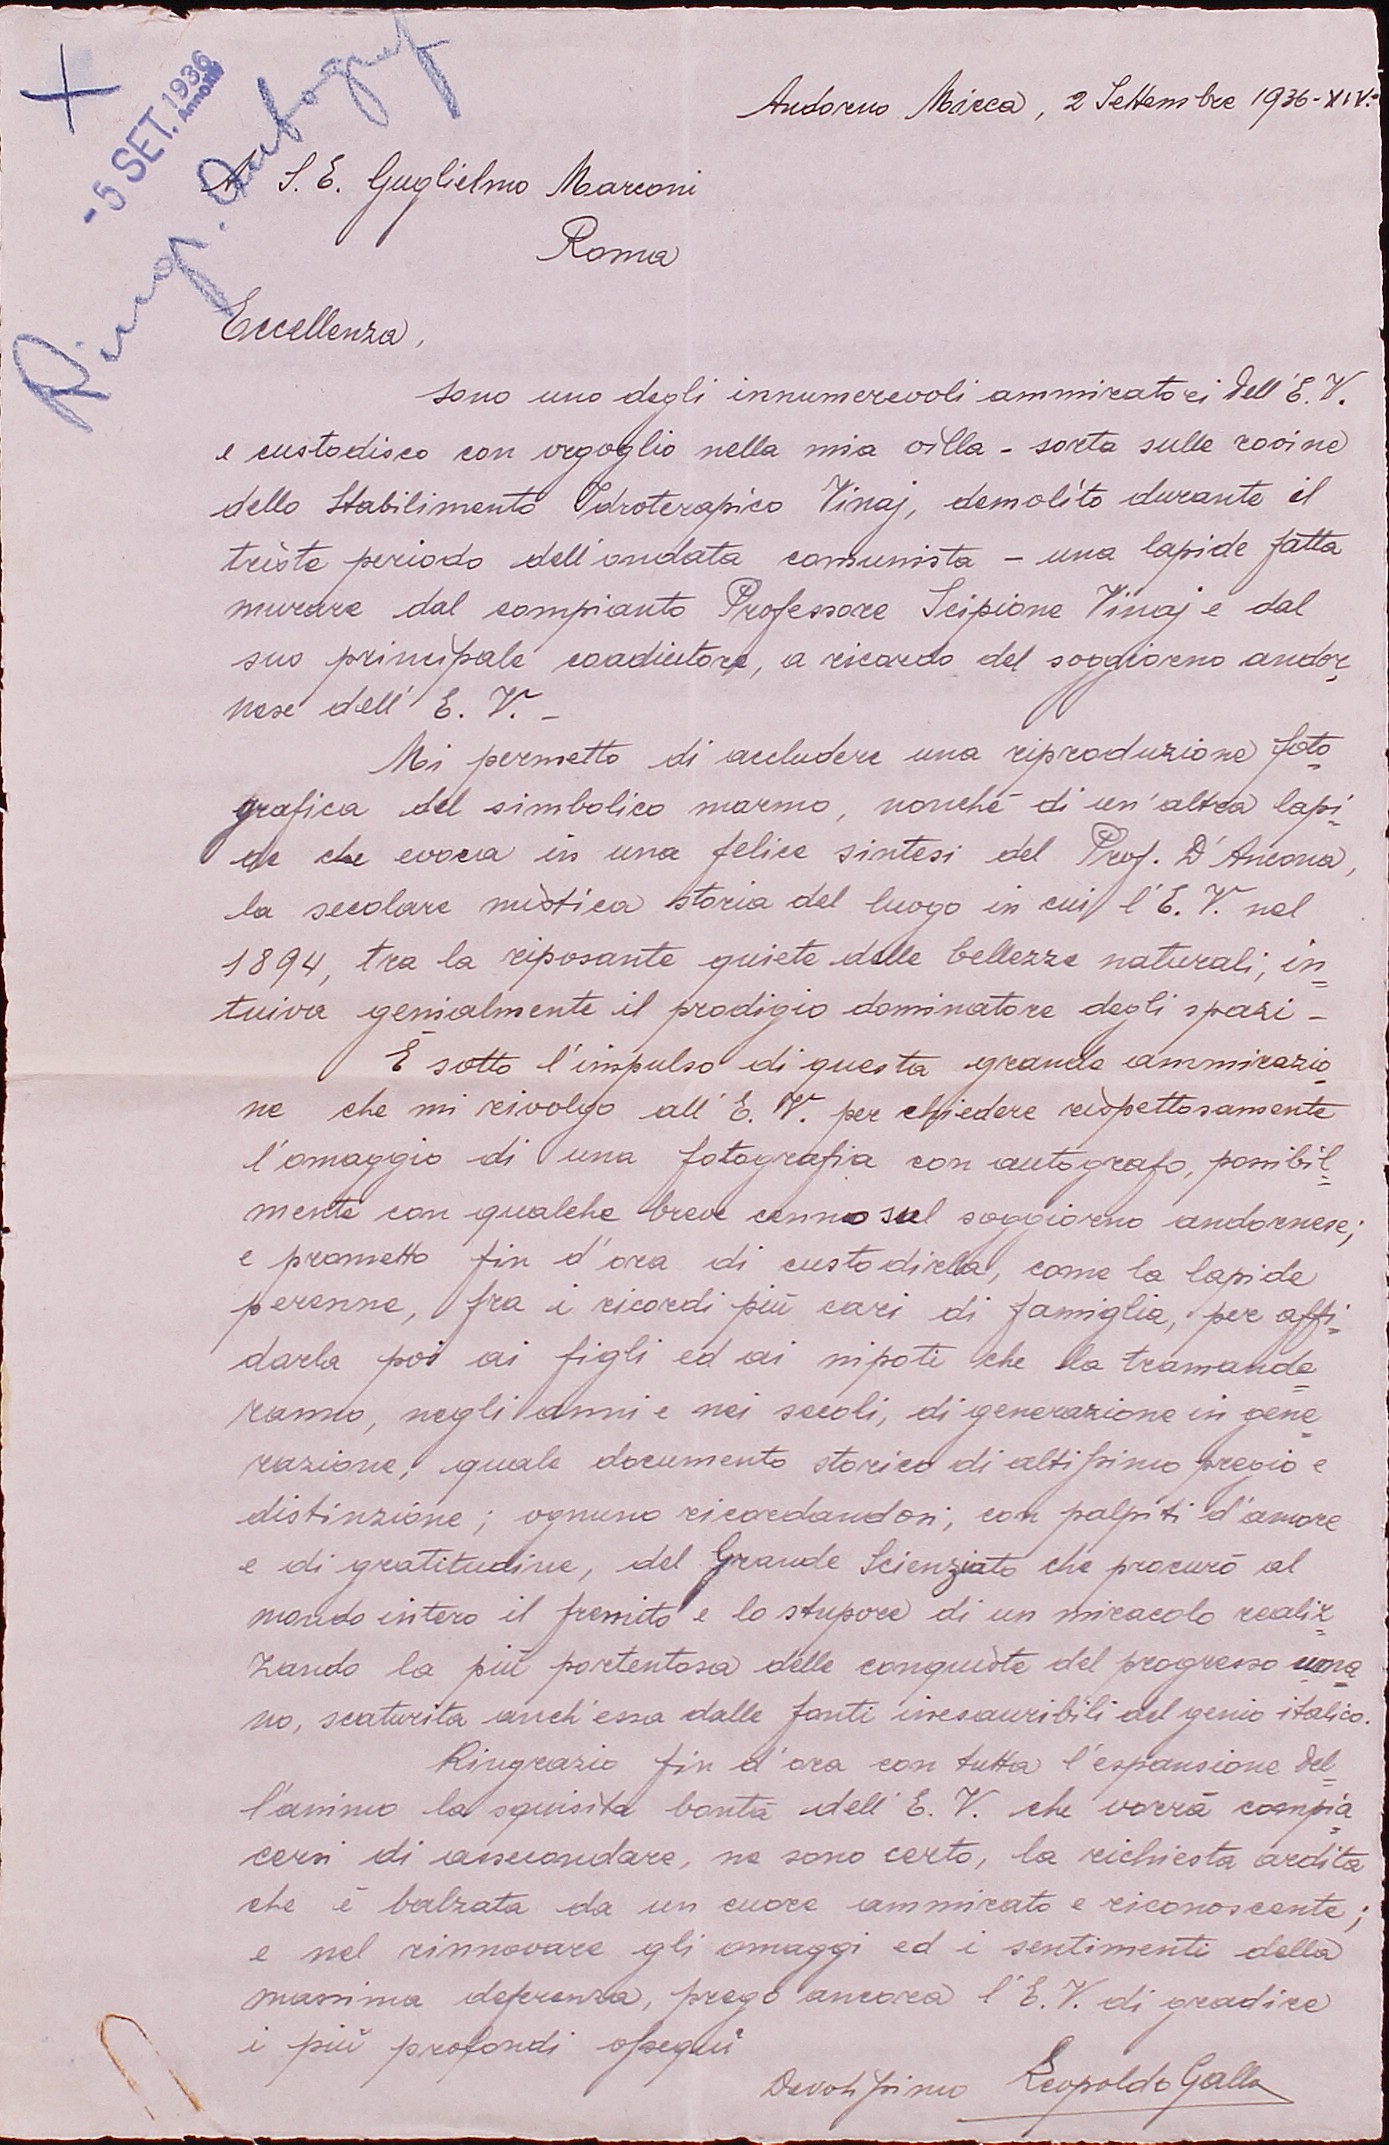 - 5 SET. 1936
Anno XIV
Ring. Autograf
Andorno Micca, 2 Settembre 1936-XIV.°
A S. E. Guglielmo Marconi
Roma
Eccellenza,
sono uno degli innumerevoli ammiratori dell'E. V.
e custodisco con orgoglio nella mia villa - sorta sulle rovine
dello Stabilimento Idroterapico Vinaj, demolito durante il
triste periodo dell'ondata comunista - una lapide fatta
murare dal compianto Professore Scipione Vinaj e dal
suo principale coadiutore, a ricordo del soggiorno andor-
nese dell'E. V. -
Mi permetto di accludere una riproduzione foto-
grafica del simbolico marmo, nonché di un'altra lapi-
de che evoca in una felice sintesi del Prof. D'Ancona,
la secolare mistica storia del luogo in cui l'E. V. nel
1894, tra la riposante quiete delle bellezze naturali, in=
tuiva genialmente il prodigio dominatore degli spazi -
È sotto l'impulso di questa grande ammirazio-
ne che mi rivolgo all'E. V. per chiedere rispettosamente
l'omaggio di una fotografia con autografo, possibil=
mente con qualche breve cenno sul soggiorno andornese;
e prometto fin d'ora di custodirla, come la lapide
perenne, fra i ricordi più cari di famiglia, per affi=
darla poi ai figli ed ai nipoti che la tramande=
ranno, negli anni e nei secoli, di generazione in gene=
razione, quale documento storico di altissimo pregio e
distinzione; ognuno ricordandosi, con palpiti d'amore
e di gratitudine, del Grande Scienziato che procurò al
mondo intero il fremito e lo stupore di un miracolo realiz=
zando la più portentosa delle conquiste del progresso uma=
no, scaturita anch'essa dalle fonti inesauribili del genio italico.
Ringrazio fin d'ora con tutta l'espansione del=
l'animo la squisita bontà dell'E. V. che vorrà compia=
cersi di assecondare, ne sono certo, la richiesta ardita
che è balzata da un cuore ammirato e riconoscente;
e nel rinnovare gli omaggi ed i sentimenti della
massima deferenza, prego ancora l'E. V. di gradire
i più profondi ossequi
Devotissimo Leopoldo Galla